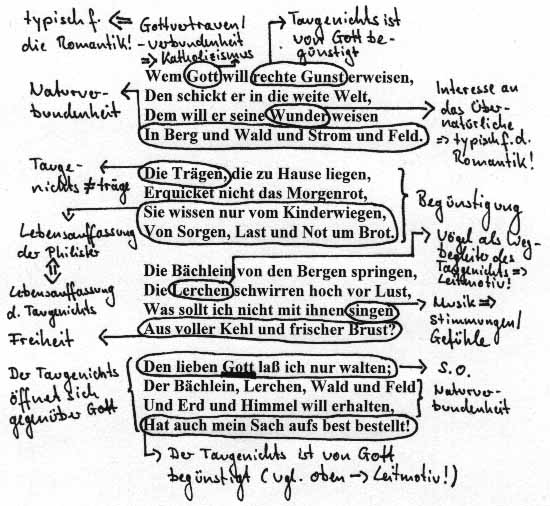 typisch f. <= Gottvertrauen/
die Romantik! -verbundenheit
=> Katholizismus
Taugenichts ist
von Gott be-
günstigt
Wem Gott will rechte Gunst erweisen,
Den schickt er in die weite Welt,
Dem will er seine Wunder weisen
In Berg und Wald und Strom und Feld.
Naturver-
bundenheit
Interesse an
das Über-
natürliche
=> typisch f. d.
Romantik!
Tauge-
nichts ≠ träge
Die Trägen, die zu Hause liegen,
Erquicket nicht das Morgenrot,
Sie wissen nur vom Kinderwiegen,
Von Sorgen, Last und Not um Brot.
Begünstigung
Lebensauffassung
der Philister
⇕
Lebensauffassung
d. Taugenichts
Freiheit
Vögel als Weg-
begleiter des
Taugenichts =>
Leitmotiv!
Die Bächlein von den Bergen springen,
Die Lerchen schwirren hoch vor Lust,
Was sollt ich nicht mit ihnen singen
Aus voller Kehl und frischer Brust?
Musik =>
Stimmungen/
Gefühle
Der Taugenichts
öffnet sich
gegenüber Gott
Den lieben Gott laß ich nur walten;
Der Bächlein, Lerchen, Wald und Feld
Und Erd und Himmel will erhalten,
Hat auch mein Sach aufs best bestellt!
S.O.
Naturver-
bundenheit
Der Taugenichts ist von Gott
begünstigt (vgl. oben -> Leitmotiv!)